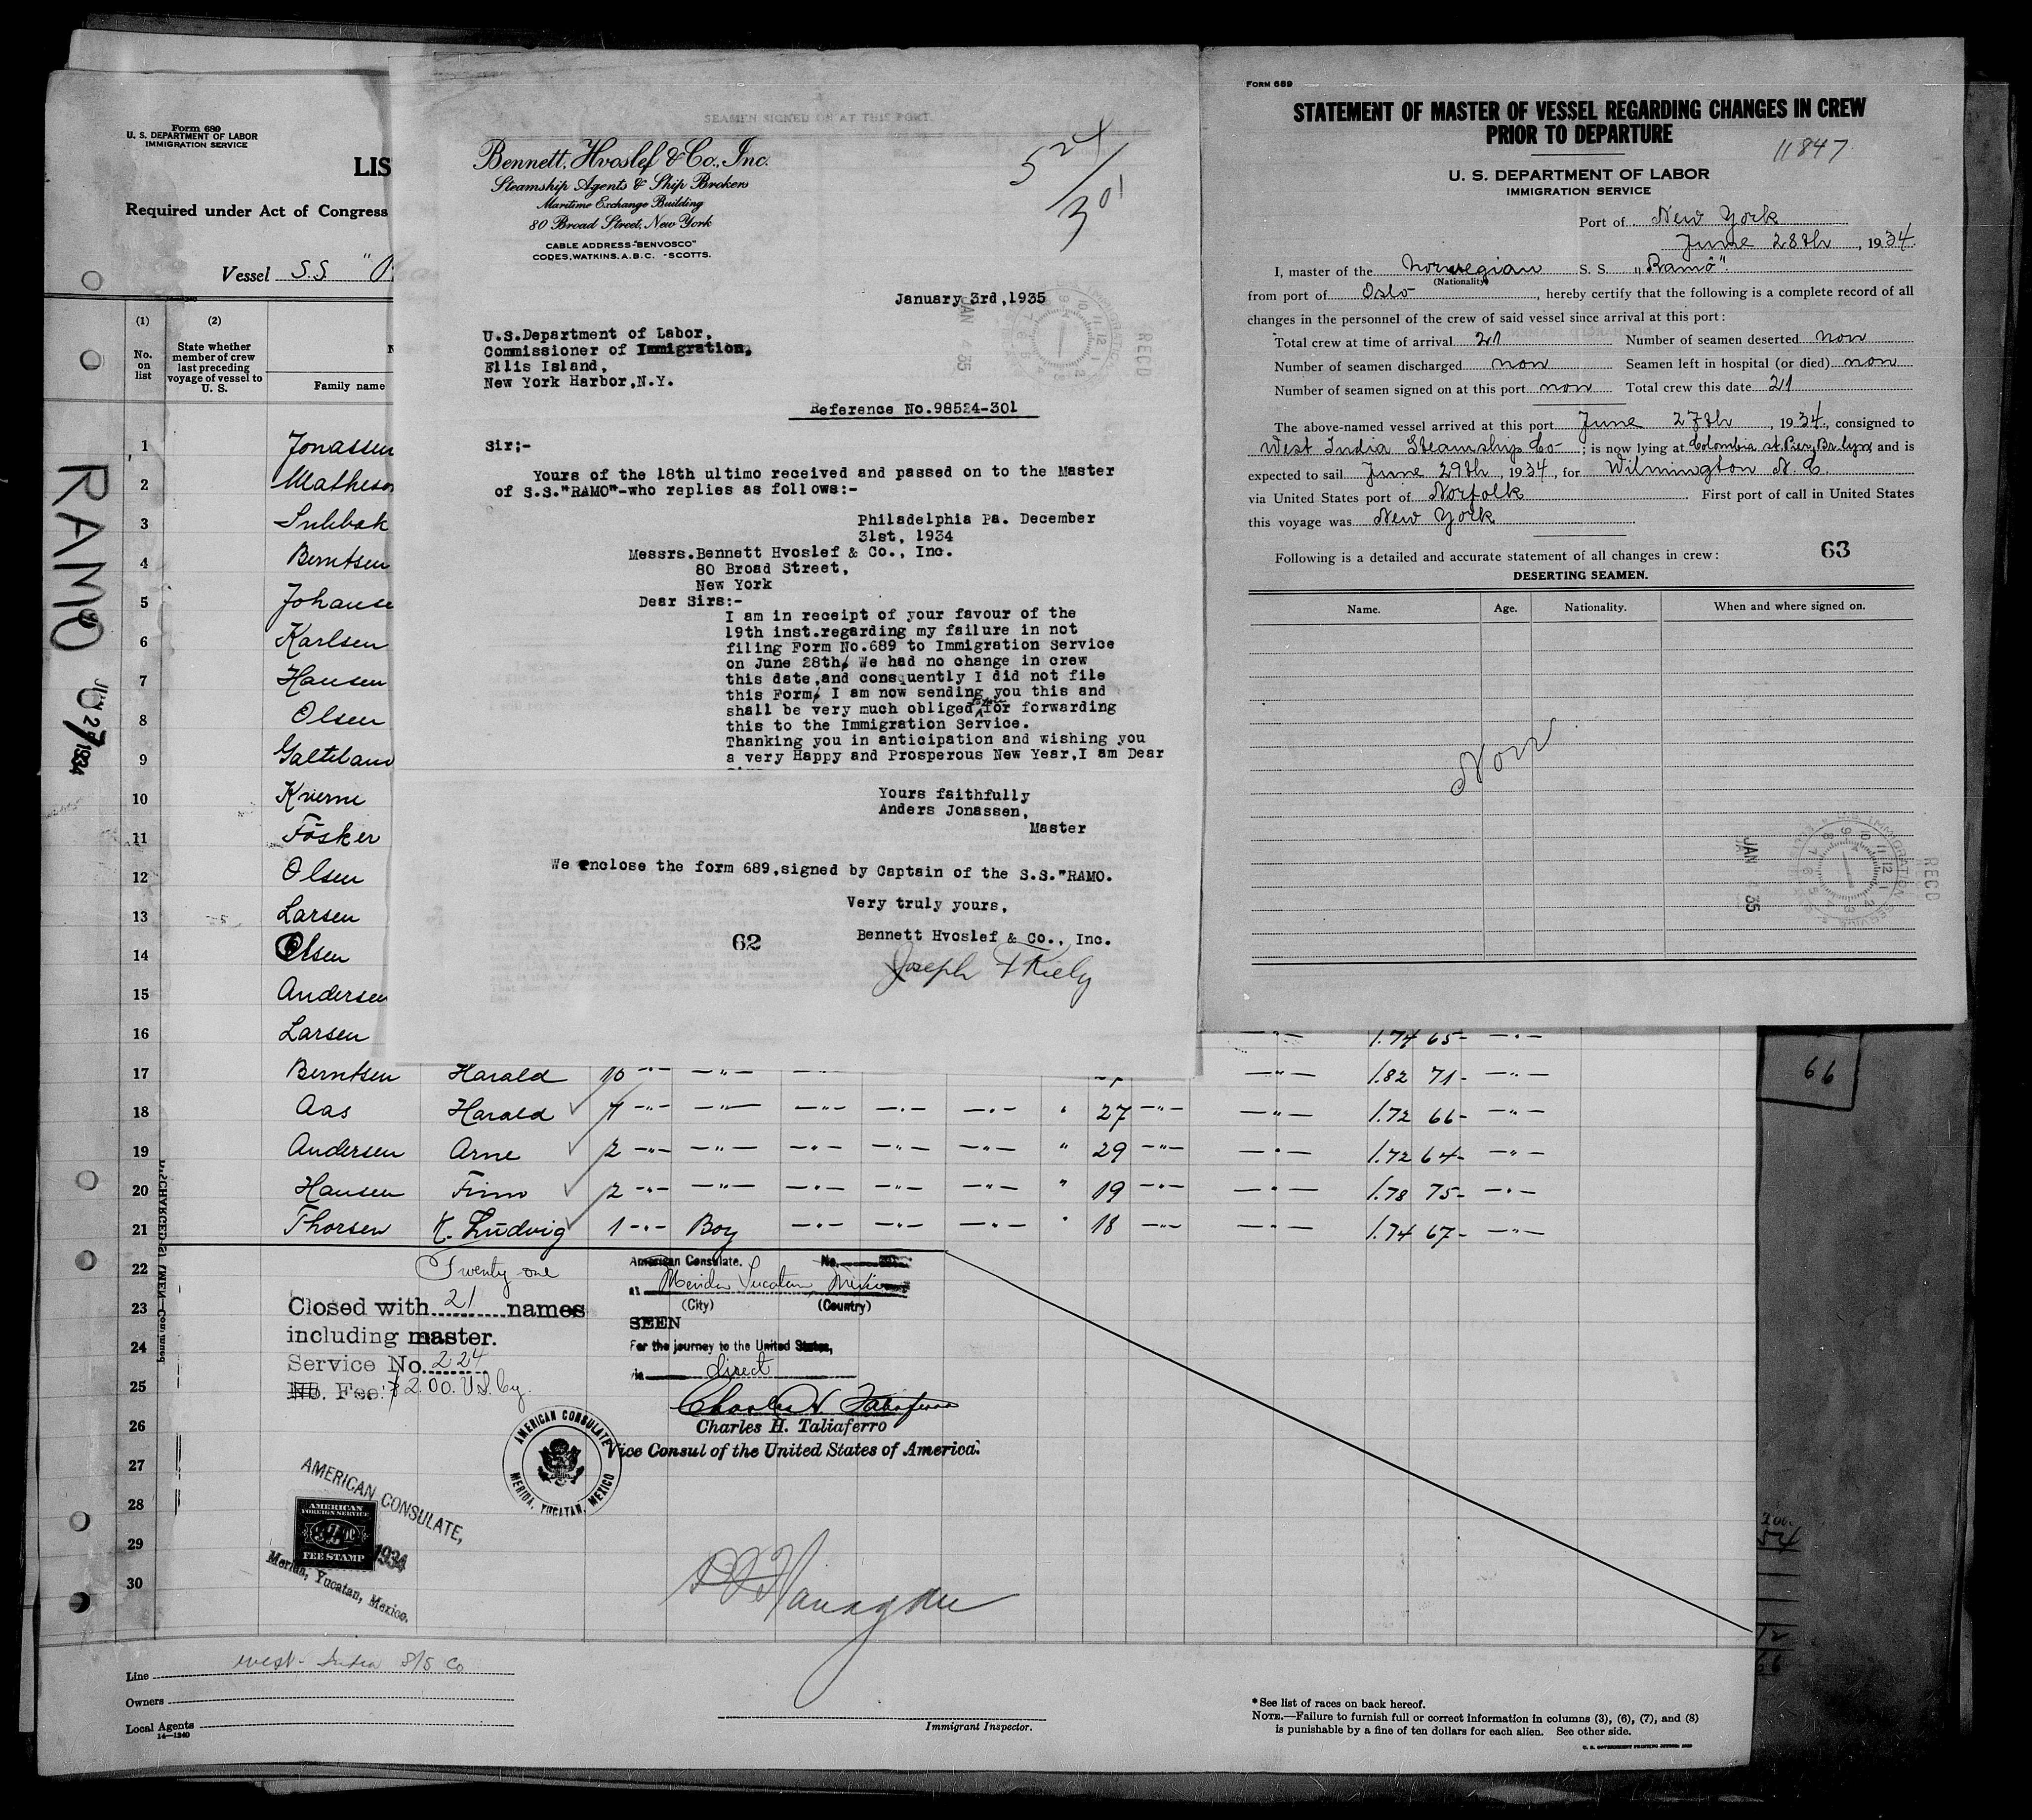 Form 689
U. S. DEPARTMENT OF LABOR
IMMIGRATION SERVICE
LIS
Required under Act of Congress
Vessel S.S. "
(1)
No. on list
(2)
State whether member of crew last preceding voyage of vessel to U. S.
Family name
1 Jonassen
2 Matheson
3
4 Berntsen
5 Johanse
6 Karlsen
7 Hansen
8 Olsen
9 Galteland
10 Kverne
11 Fösker
12 Olsen
13 Larsen
14 Olsen
15 Andersen
16 Larsen 1.74 65- —"—
17 Berntsen Harald 10 —"— —"— —"— —"— 1.82 71- —"—
18 Aas Harald 7 —"— —"— —"— —"— —"— " 27 —"— —"— 1.72 66- —"—
19 Andersen Arne 2 —"— —"— —"— —"— —"— " 29 —"— —"— 1.72 64- —"—
20 Hansen Finn 2 —"— —"— —"— —"— —"— " 19 —"— —"— 1.78 75- —"—
21 Thorsen K. Ludvig 1 —"— Boy —"— —"— —"— " 18 —"— —"— 1.74 67- —"—
22
23
24
25
26
27
28
29
30
RAMO
JUN 27 1934
Twenty-one
Closed with 21 names
including master.
Service No. 224
No. Fee: $2.00 U.S. Cy.
American Consulate. No.
at Merida Yucatan, Mexico
(City) (Country)
SEEN
For the journey to the United States,
via direct
Charles H. Taliaferro
Charles H. Taliaferro
Vice Consul of the United States of America.
AMERICAN CONSULATE
MERIDA, YUCATAN, MEXICO
AMERICAN CONSULATE,
AMERICAN
FOREIGN SERVICE
FEE STAMP
1934
Merida, Yucatan, Mexico.
Line West-India S/S Co
Owners
Local Agents
14—1240
Immigrant Inspector.
* See list of races on back hereof.
NOTE.—Failure to furnish full or correct information in columns (3), (6), (7), and (8)
is punishable by a fine of ten dollars for each alien. See other side.
SEAMEN SIGNED ON AT THIS PORT.
Bennett, Hvoslef & Co., Inc.
Steamship Agents & Ship Brokers
Maritime Exchange Building
80 Broad Street, New York
CABLE ADDRESS-"BENVOSCO"
CODES, WATKINS. A.B.C. -SCOTTS.
524/301
January 3rd,1935
U.S.Department of Labor,
Commissioner of Immigration,
Ellis Island,
New York Harbor,N.Y.
Reference No.98524-301
Sir;-
Yours of the 18th ultimo received and passed on to the Master
of S.S."RAMO"-who replies as follows:-
Philadelphia Pa. December
31st, 1934
Messrs.Bennett Hvoslef & Co., Inc.
80 Broad Street,
New York
Dear Sirs:-
I am in receipt of your favour of the
19th inst.regarding my failure in not
filing Form No.689 to Immigration Service
on June 28th, We had no change in crew
this date,and consquently I did not file
this Form, I am now sending you this and
shall be very much obliged for forwarding
this to the Immigration Service.
Thanking you in anticipation and wishing you
a very Happy and Prosperous New Year,I am Dear
Yours faithfully
Anders Jonassen,
Master
We enclose the form 689,signed by Captain of the S.S."RAMO.
Very truly yours,
62
Bennett Hvoslef & Co., Inc.
Joseph F Kiely
RECD
JAN 4 35
FORM 689
STATEMENT OF MASTER OF VESSEL REGARDING CHANGES IN CREW
PRIOR TO DEPARTURE
11847
U. S. DEPARTMENT OF LABOR
IMMIGRATION SERVICE
Port of New York
June 28th, 1934.
I, master of the Norwegian S. S. "Ramö".
(Nationality)
from port of Oslo, hereby certify that the following is a complete record of all
changes in the personnel of the crew of said vessel since arrival at this port:
Total crew at time of arrival 21 Number of seamen deserted non
Number of seamen discharged non Seamen left in hospital (or died) non
Number of seamen signed on at this port non Total crew this date 21
The above-named vessel arrived at this port June 27th, 1934, consigned to
West India Steamship Co; is now lying at Colombia st. Pier, Br.lyn, and is
expected to sail June 29th, 1934, for Wilmington N. C.
via United States port of Norfolk. First port of call in United States
this voyage was New York
Following is a detailed and accurate statement of all changes in crew:
63
DESERTING SEAMEN.
Name. Age. Nationality. When and where signed on.
Non
RECD
JAN 35
66
54
12
66